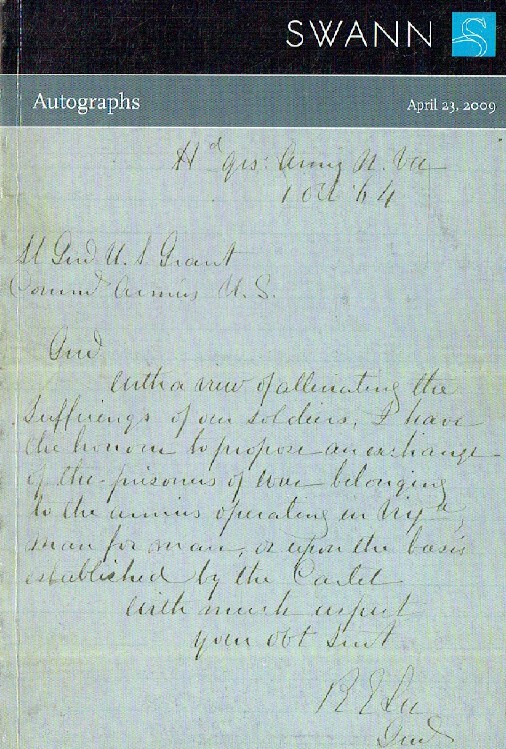 SWANN
Autographs
April 23, 2009
Hd qrs: Army N. Va
1 Oct '64
Lt Genl U. S Grant
Commd Armies U. S.
Genl
With a view of alleviating the
sufferings of our soldiers, I have
the honour to propose an exchange
of the prisoners of war belonging
to the armies operating in Virga,
man for man, or upon the basis
established by the Cartel
With much respect
your obt servt
R E Lee
Genl